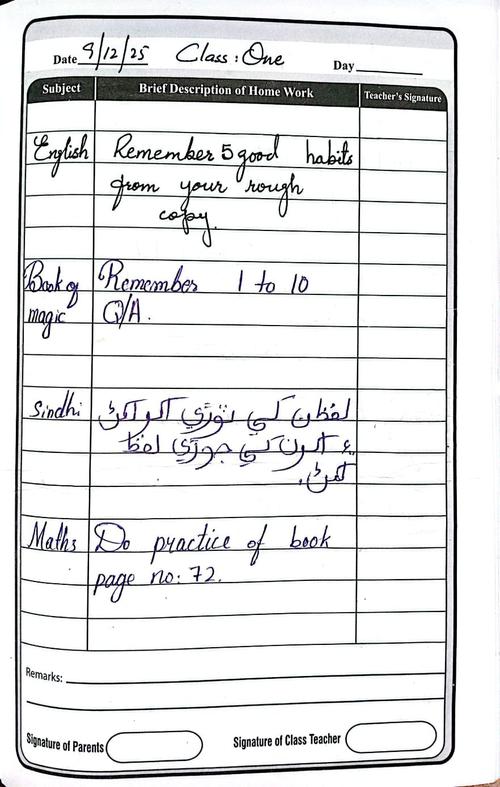 Date 9/12/25 Class: One Day
Subject Brief Description of Home Work Teacher's Signature
English Remember 5 good habits
from your rough
copy.
Book of Remember 1 to 10
magic Q/A.
Sindhi لفظن کي ٽوڙي اکر لکڻ
۽ اکرن کي جوڙي لفظ
لکڻ.
Maths Do practice of book
page no: 72.
Remarks:
Signature of Parents Signature of Class Teacher